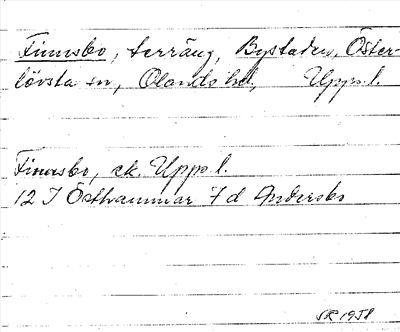 Finnsbo, terräng, Bystaden, Öster-
lövsta sn, Olands hd, Upps. l.
Finnsbo, ek. Upps l.
12 I Östhammar 7 d Andersbo
SR 1958